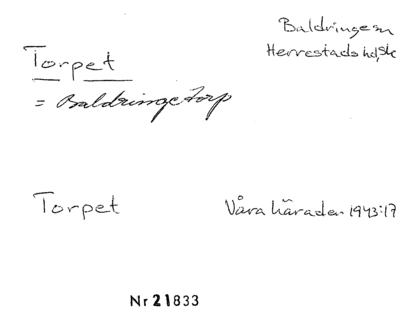 Baldringe sn
Herrestads hd, Sk
Torpet
= Baldringetorp
Torpet Våra härader 1943:17
Nr 21833